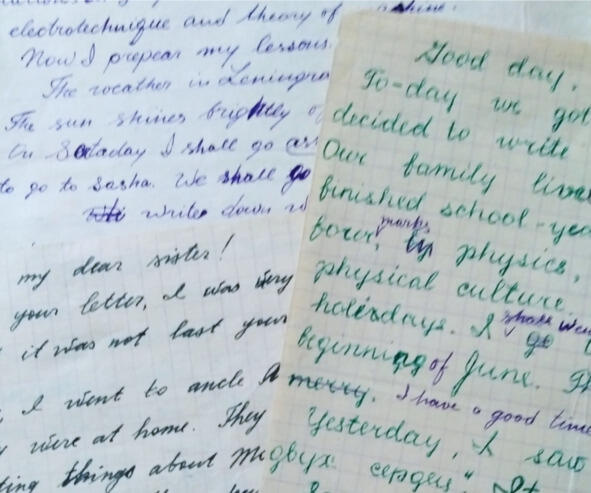 electrotechnique and theory of
Now I prepear my lessons.
The weather in Leningra
The sun shines brightly
On Sataday I shall go
to go to Sasha. We shall go
write down
my dear sister!
your letter, I was very
it was not last your
I went to uncle
were at home. They
ting things about
Good day,
To-day we got
decided to write
Our family live
finished school-yea
four, marks in physics,
physical culture.
holesdays. I shall go
beginning of June. Th
merry. I have a good time
Yesterday, I saw
двух сердец"